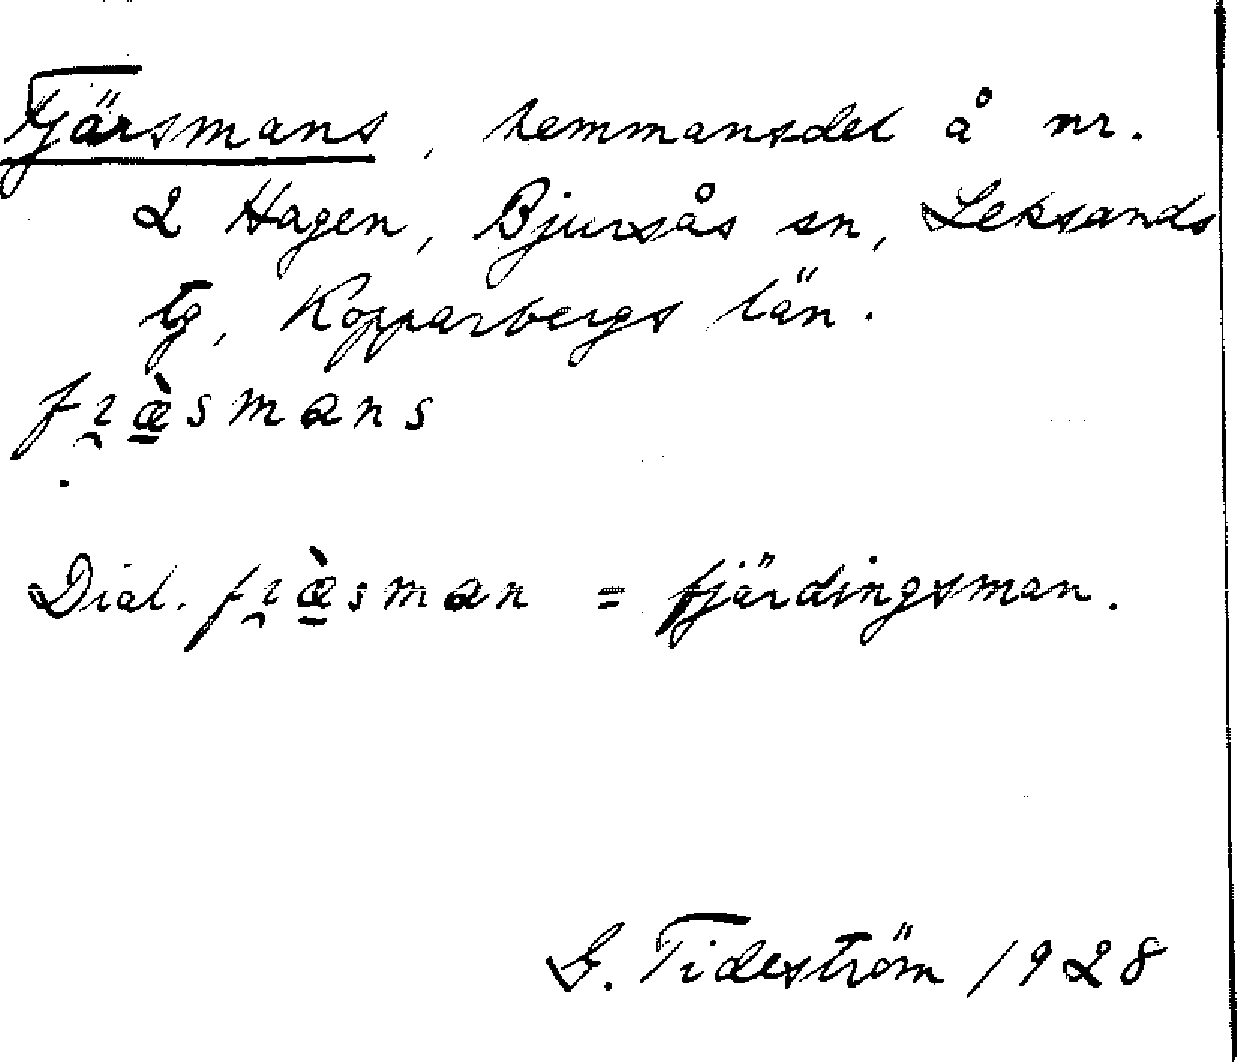 Fjärsmans, hemmansdel å nr.
2 Hagen, Bjursås sn, Leksands
tg, Kopparbergs län.
fı̯æ̠̀smans
Dial. fı̯æ̠̀sman = fjärdingsman.
G. Tideström 1928